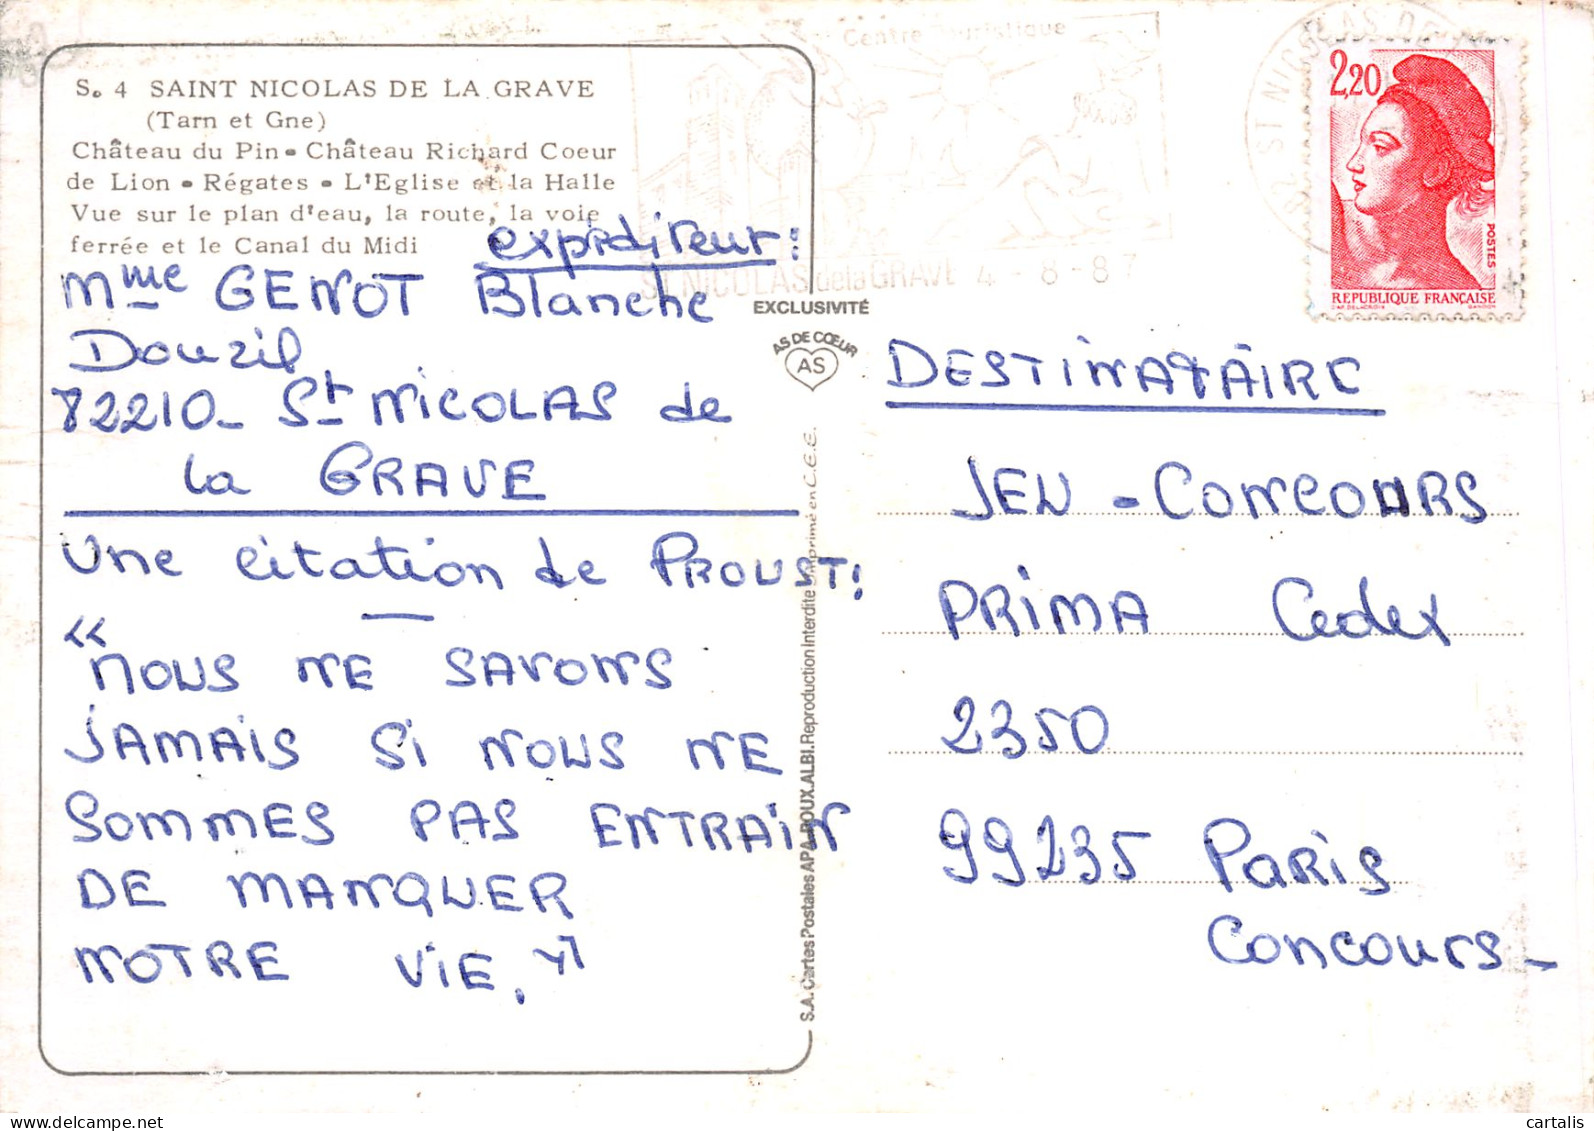 S. 4 SAINT NICOLAS DE LA GRAVE
(Tarn et Gne)
Château du Pin - Château Richard Coeur
de Lion - Régates - L'Eglise et la Halle
Vue sur le plan d'eau, la route, la voie
ferrée et le Canal du Midi
expéditeur:
Mme GENOT Blanche
Douzil
82210_ St NICOLAS de
la GRAVE
Une citation de PROUST:
« NOUS NE SAVONS
JAMAIS Si NOUS NE
SOMMES PAS ENTRAIN
DE MANQUER
NOTRE ViE. »
EXCLUSIVITÉ
AS DE CŒUR
AS
S.A. Cartes Postales APA-POUX. ALBI. Reproduction Interdite Imprimé en C.E.E.
Centre Touristique
ST NICOLAS de la GRAVE 4 - 8 - 87
ST NICOLAS DE
82
2,20
POSTES
REPUBLIQUE FRANÇAISE
DESTINATAIRE
JEU - CONCOURS
PRIMA Cedex
2350
99235 PARiS
CONCOURS_
cartalis